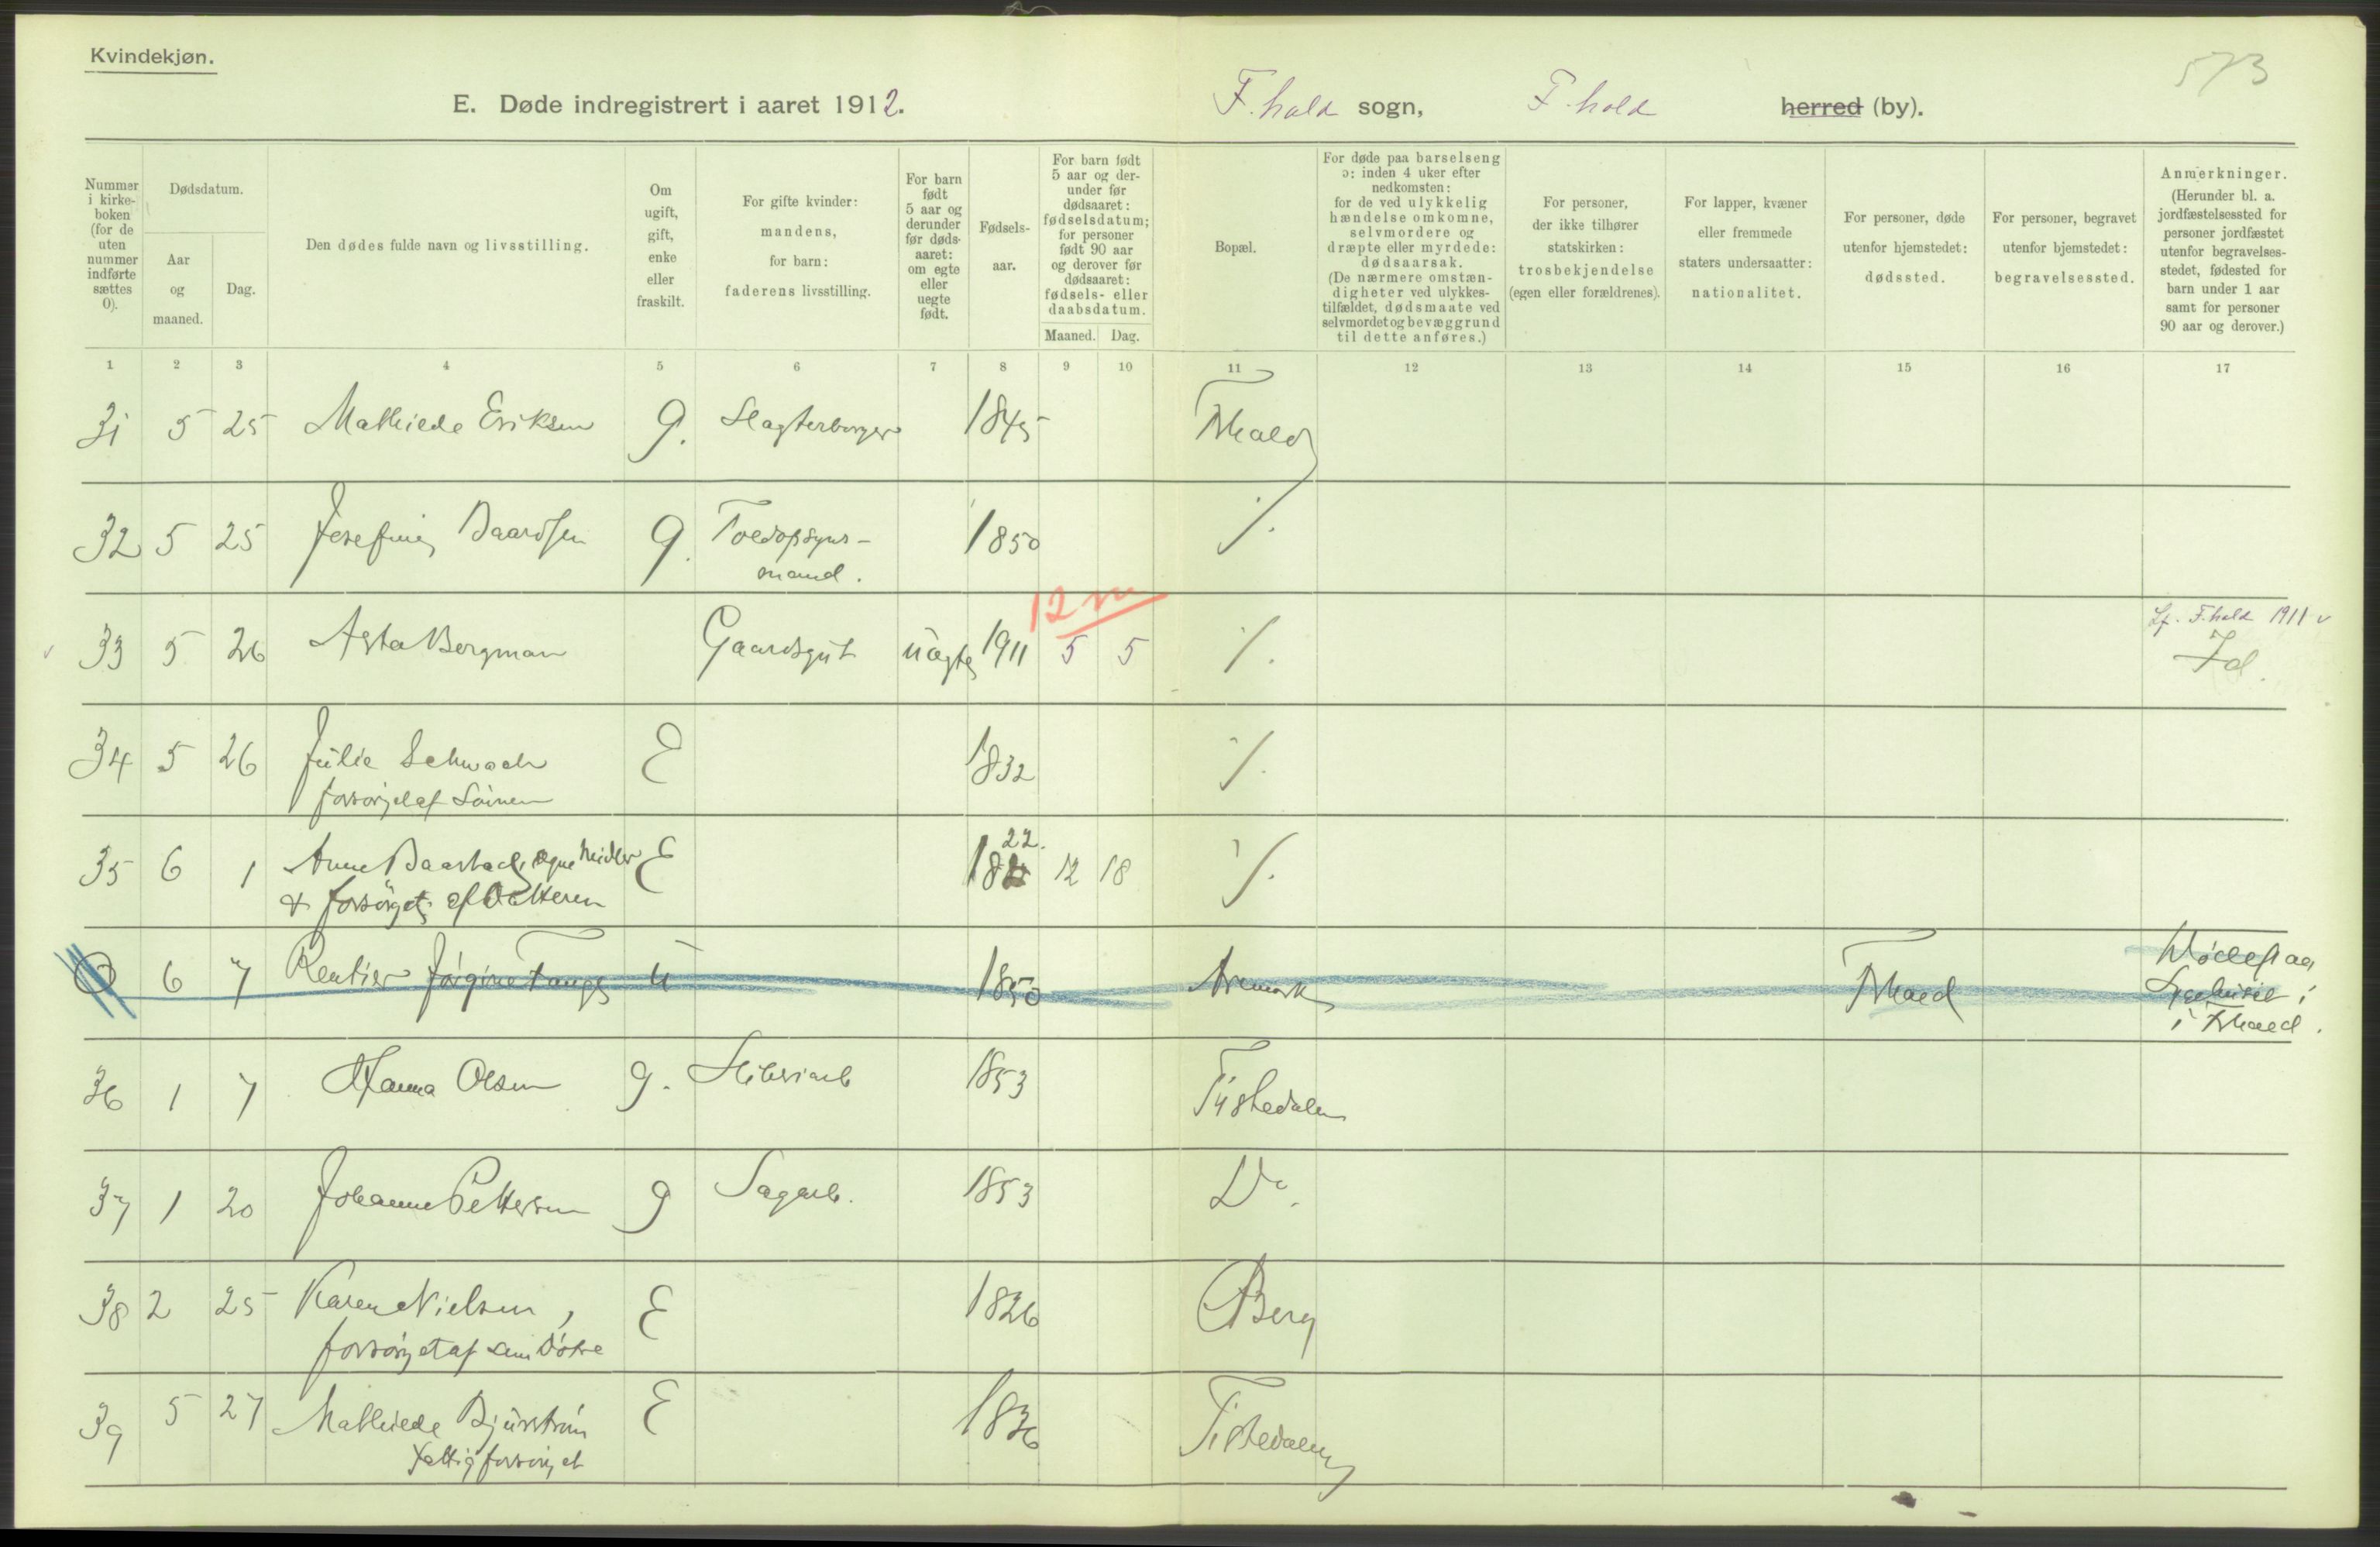 Kvindekjøn.
573
E. Døde indregistrert i aaret 1912. F.hald sogn, F.hald herred (by).
Nummer i kirkeboken (for de uten nummer indførte sættes 0).
Dødsdatum.
Aar og maaned.
Dag.
Den dødes fulde navn og livsstilling.
Om ugift, gift, enke eller fraskilt.
For gifte kvinder: mandens, for barn: faderens livsstilling.
For barn født 5 aar og derunder før dødsaaret: om egte eller uegte født.
Fødselsaar.
For barn født 5 aar og derunder før dødsaaret: fødselsdatum; for personer født 90 aar og derover før dødsaaret: fødsels- eller daabsdatum.
Maaned. Dag.
Bopæl.
For døde paa barselseng ɔ: inden 4 uker efter nedkomsten: for de ved ulykkelig hændelse omkomne, selvmordere og dræpte eller myrdede: dødsaarsak. (De nærmere omstændigheter ved ulykkestilfældet, dødsmaate ved selvmordet og bevæggrund til dette anføres.)
For personer, der ikke tilhører statskirken: trosbekjendelse (egen eller forældrenes).
For lapper, kvæner eller fremmede staters undersaatter: nationalitet.
For personer, døde utenfor hjemstedet: dødssted.
For personer, begravet utenfor hjemstedet: begravelsessted.
Anmerkninger. (Herunder bl. a. jordfæstelsessted for personer jordfæstet utenfor begravelsesstedet, fødested for barn under 1 aar samt for personer 90 aar og derover.)
1 2 3 4 5 6 7 8 9 10 11 12 13 14 15 16 17
31 5 25 Mathilde Eriksen g. Slagterborger 1845 Fhald
32 5 25 Josefine Baardsen g. Toldopsyns- 1850 ⁒
mand.
12 m
Lf. F.hald 1911 v
33 5 26 Asta Bergman Gaardsgut uægte 1911 5 5 ⁒ Id.
34 5 26 Julie Schwach E 1832 ⁒
forsørget af Sönnen
35 6 1 Anne Baastad, egne Midler E 1822. 12 18 ⁒
& forsörget af Datteren
0 6 7 Rentier Jørgine Tange u 1850 Aremark Fhald Døde paa
Sygehuset i
i Fhald.
36 1 7 Hanna Olsen g. Sliberiarb 1853 Tistedalen
37 1 20 Johanne Pettersen g Sagarb. 1853 Do.
38 2 25 Karen Nielsen, E 1826 Berg
forsörget af sin Döttre
39 5 27 Mathilde Bjurström E 1836 Tistedalen
Fattigforsörget